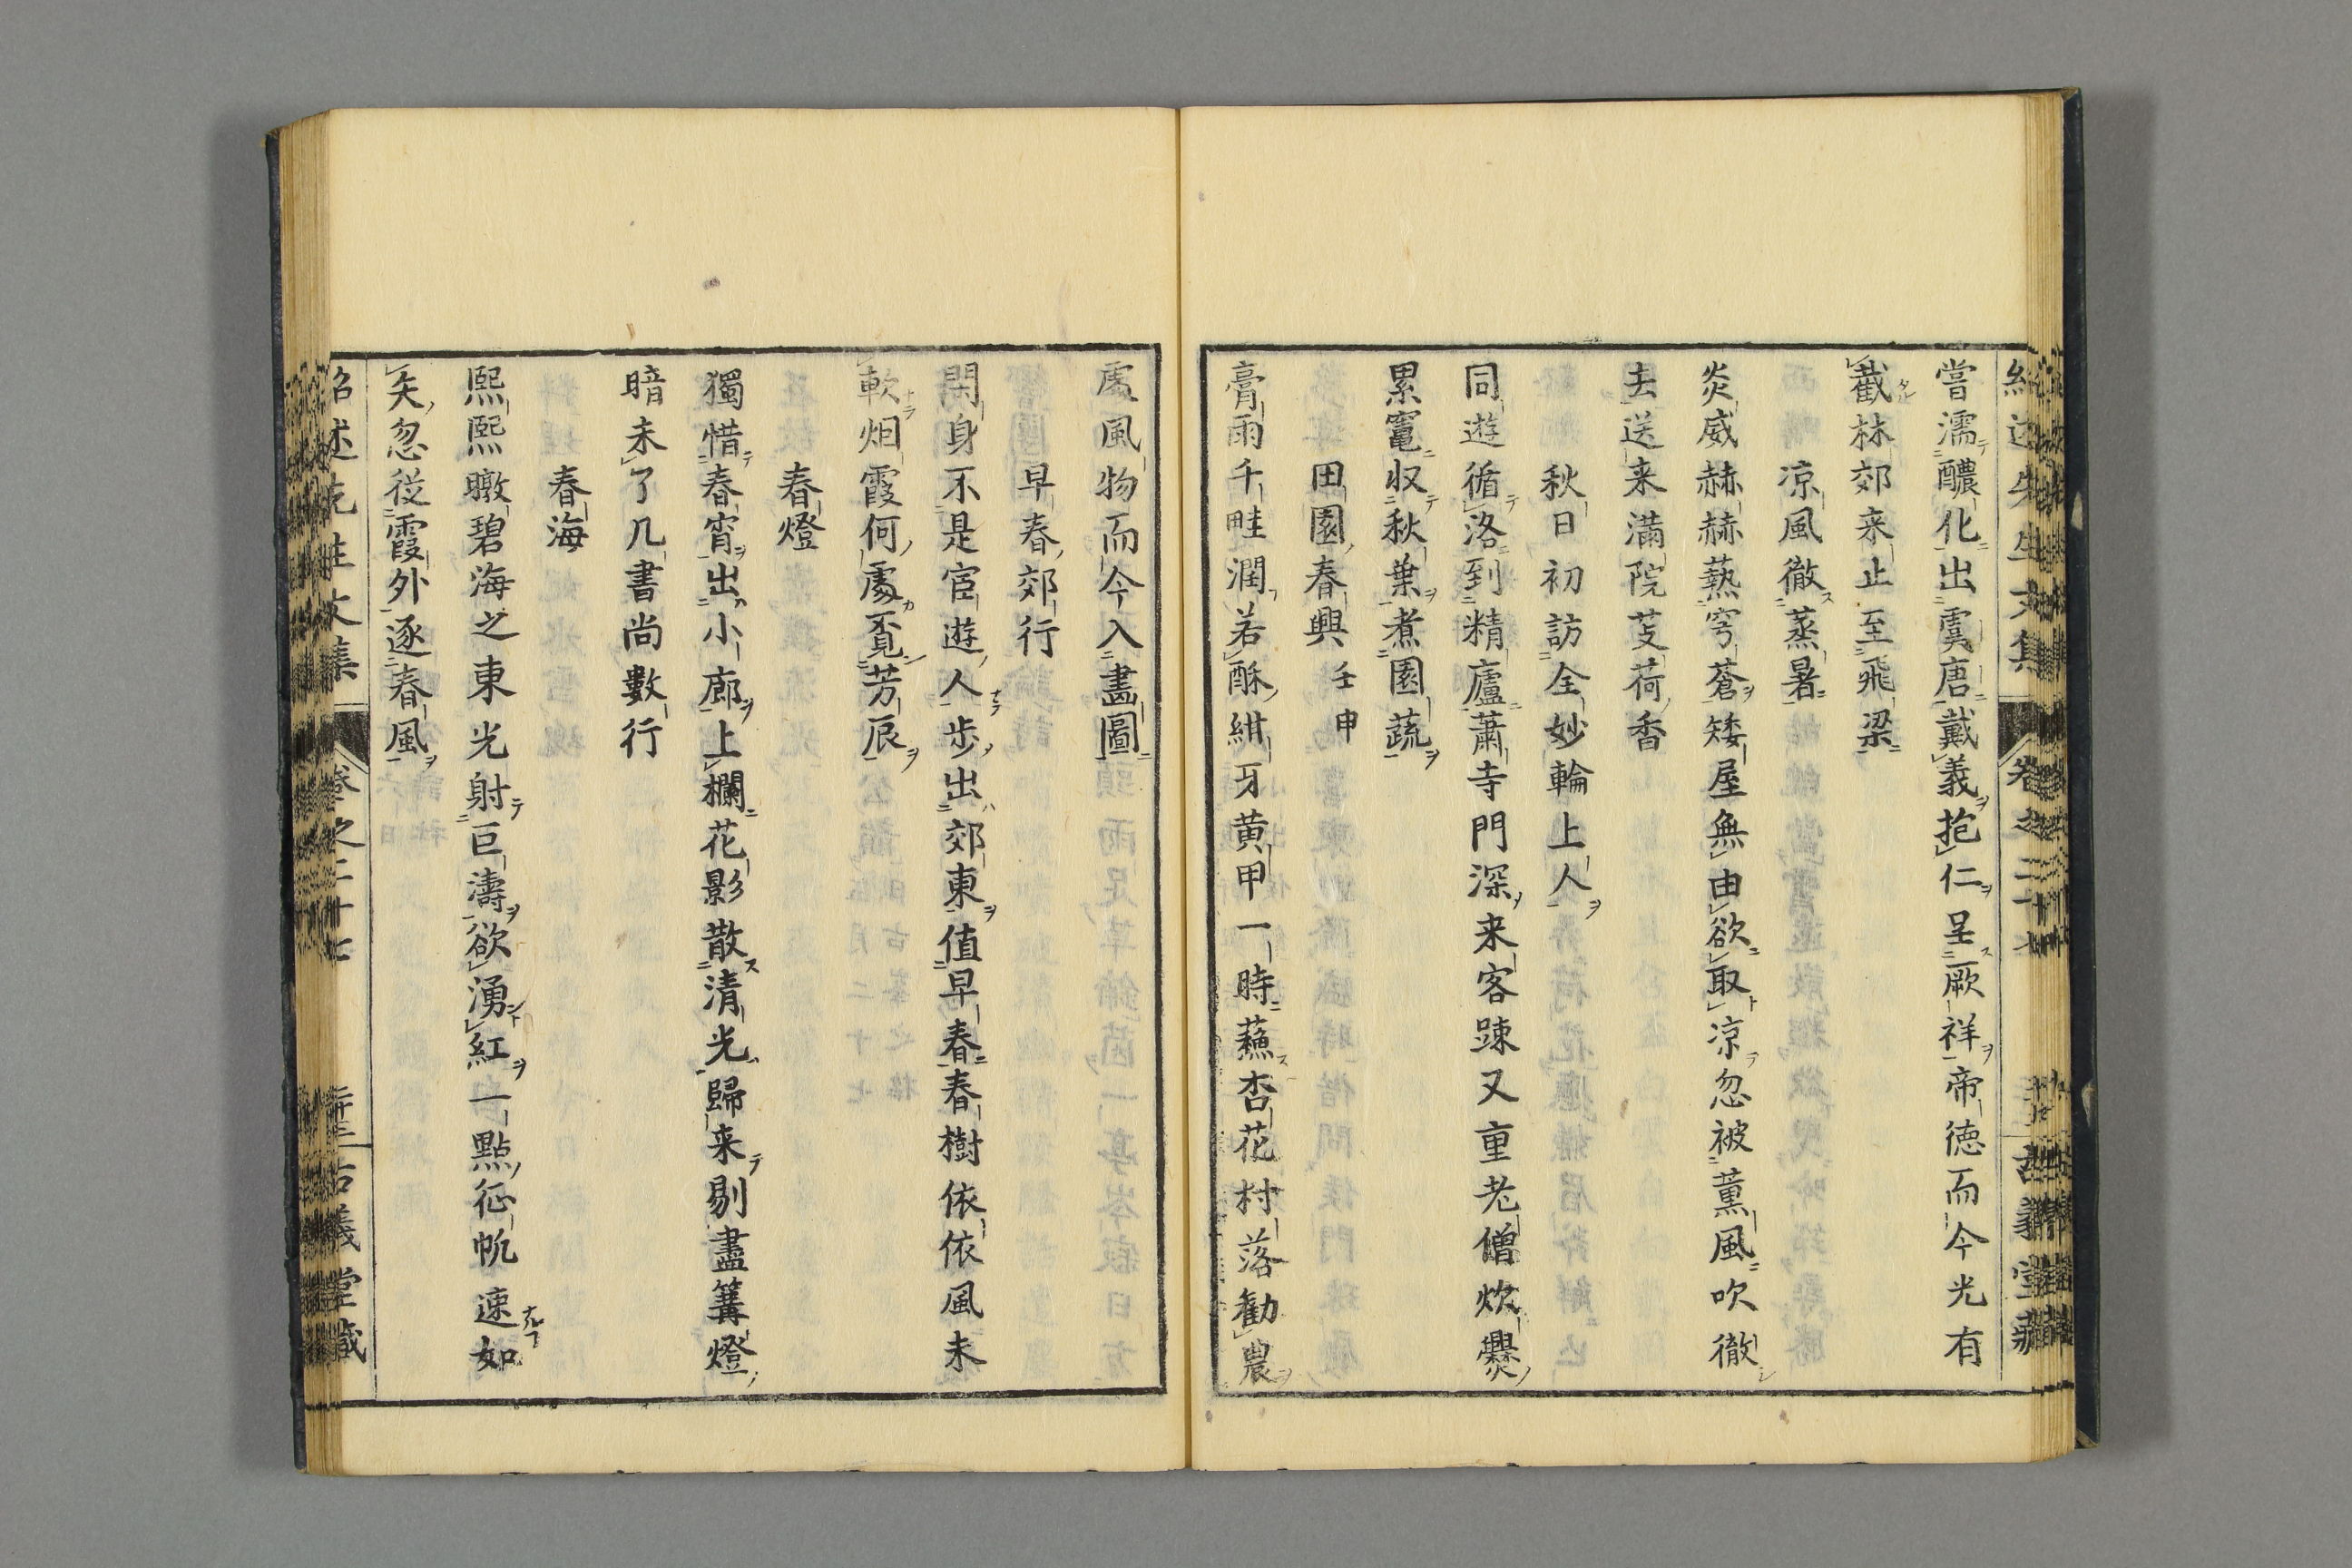 嘗濡醲化出虞唐戴義抱仁呈厥祥帝徳而今光有
截林郊来止至飛梁
凉風徹蒸暑
炎威赫赫爇穹蒼矮屋無由欲取凉忽被薫風吹徹
去送来滿院芰荷香
秋日初訪全妙輪上人
同遊循洛到精廬蕭寺門深来客踈又重老僧炊爨
累竃収秋葉煮園蔬
田園春興 壬申
膏雨千畦潤若酥紺牙黄甲一時蘓杏花村落勧農
處風物而今入畫圖
早春郊行
閑身不是宦遊人歩出郊東値早春春樹依依風未
軟烟霞何處覔芳辰
春燈
獨惜春宵出小廊上欄花影散清光歸来剔盡篝燈
暗未了几書尚數行
春海
熙熙暾碧海之東光射巨濤欲湧紅一點征帆速如
矢忽從霞外逐春風
紹述先生文集 卷之二十七 古義堂藏